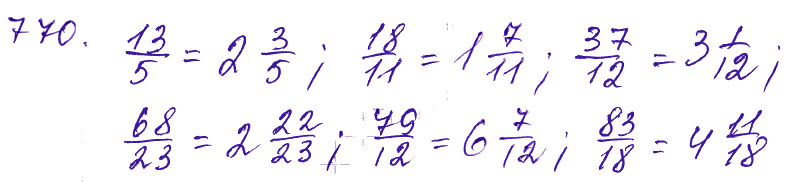 770. 13/5 = 2 3/5; 18/11 = 1 7/11; 37/12 = 3 1/12;
68/23 = 2 22/23; 79/12 = 6 7/12; 83/18 = 4 11/18